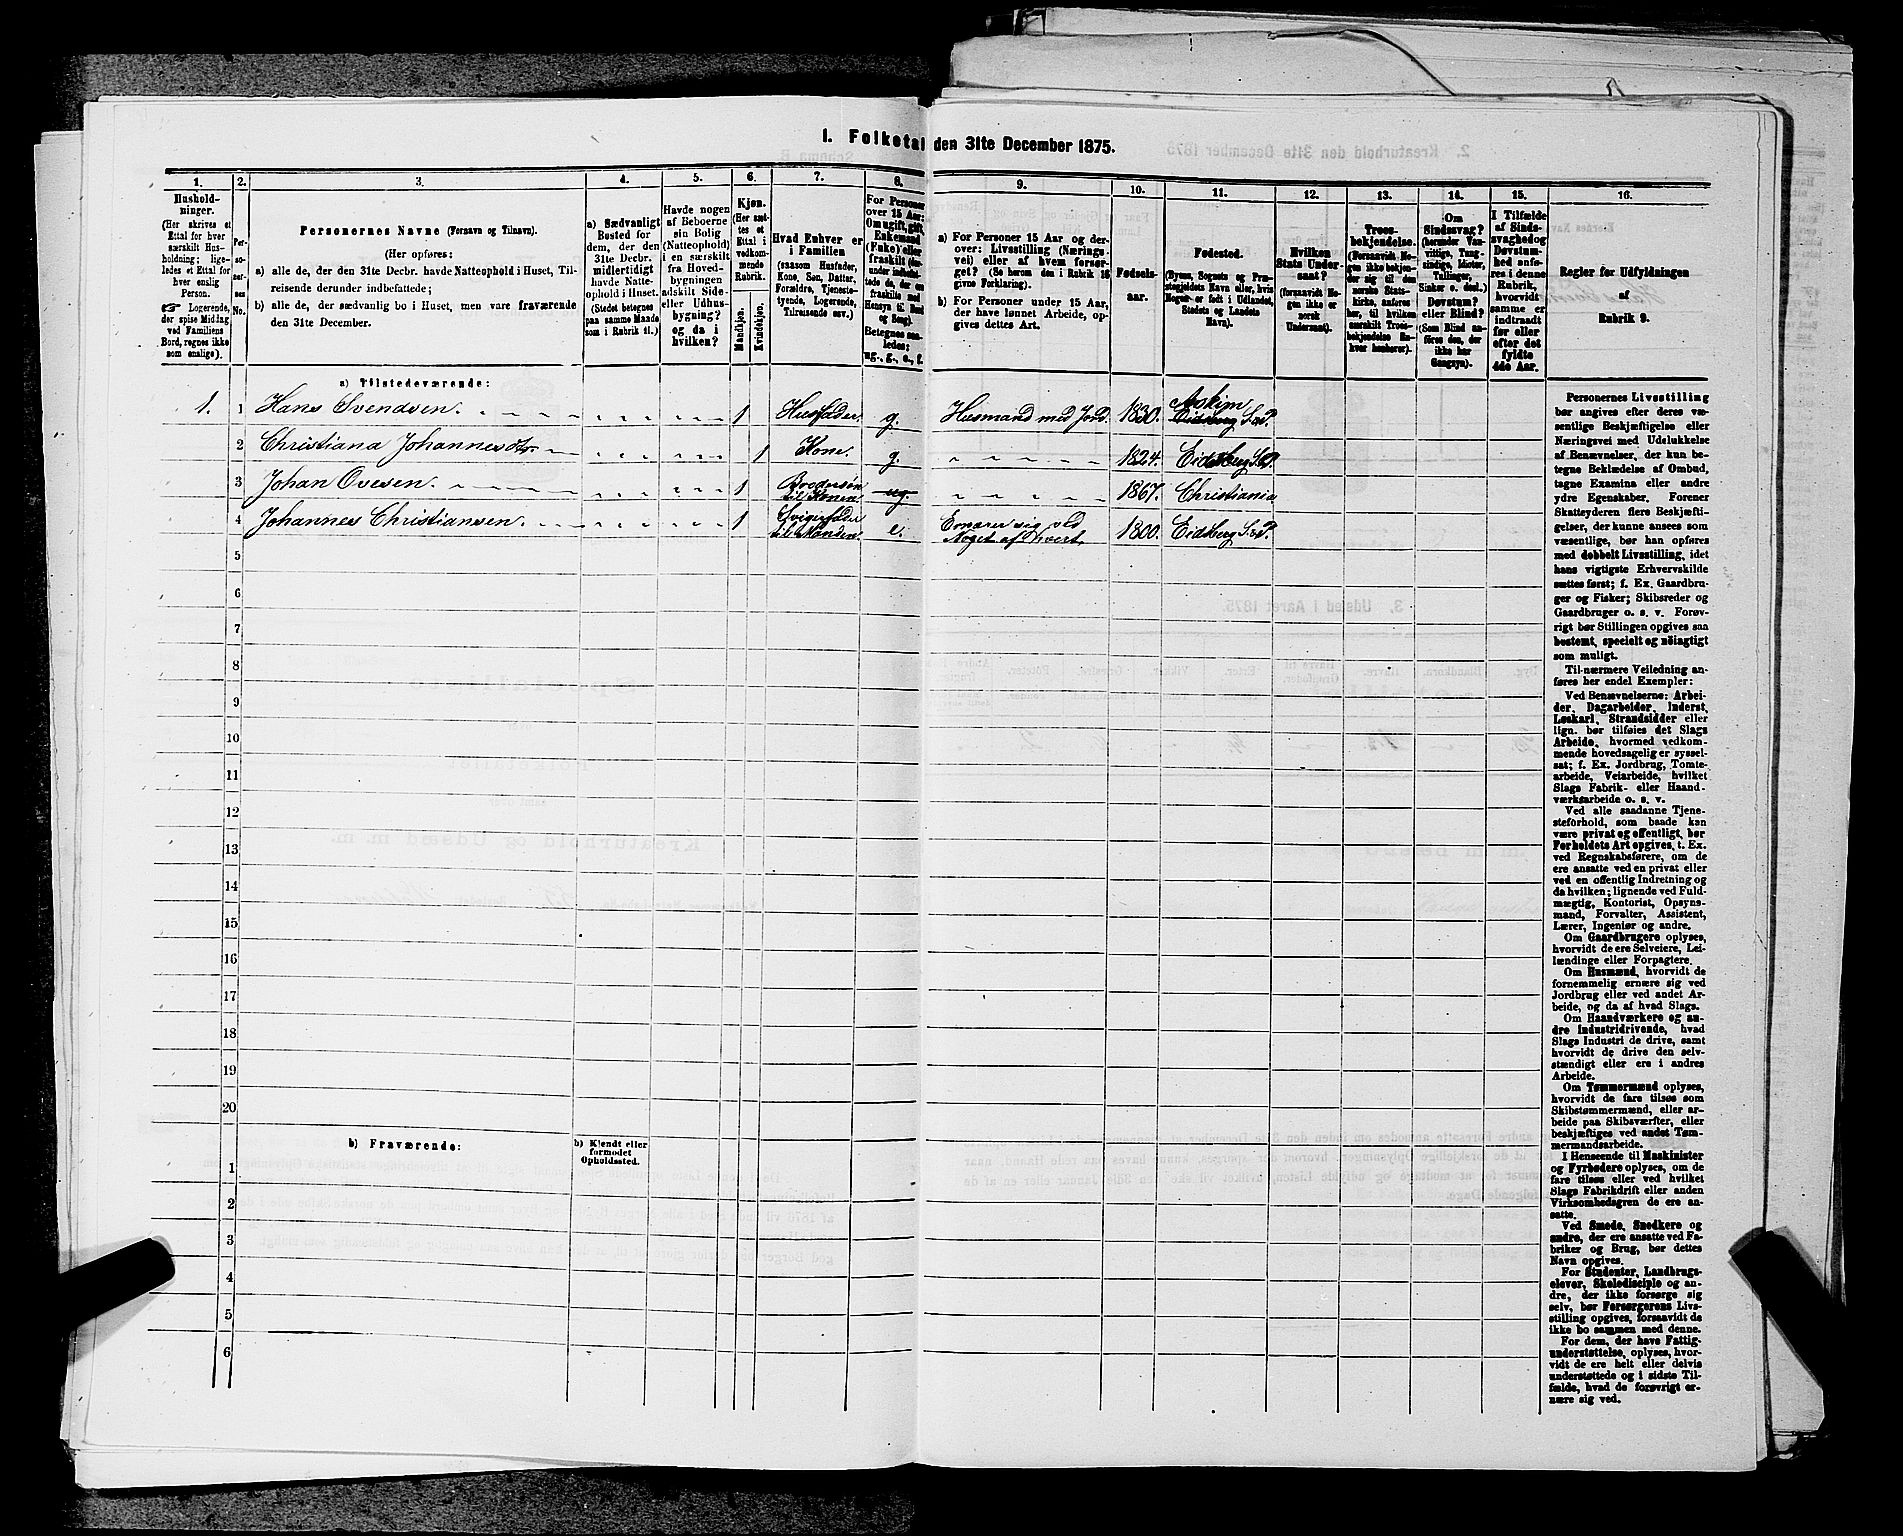 1. Folketal den 31te December 1875.
1.
Hushold-
ninger.
(Her skrives et
Ettal for hver
særskilt Hus-
holdning; lige-
ledes et Ettal for
hver enslig
Person.
☞ Logerende,
der spise Middag
ved Familiens
Bord, regnes ikke
som enslige).
2.
Per-
so-
ner-
nes
No.
3.
Personernes Navne (Fornavn og Tilnavn).
(Her opføres:
a) alle de, der den 31te Decbr. havde Natteophold i Huset, Til-
reisende derunder indbefattede;
b) alle de, der sædvanlig bo i Huset, men vare fraværende
den 31te December.
4.
a) Sædvanligt
Bosted for
dem, der den
31te Decbr.
midlertidigt
havde Natte-
ophold i Huset.
(Stedet betegnes
paa samme Maade
som i Rubrik 11.)
5.
Havde nogen
af Beboerne
sin Bolig
(Natteophold)
i en særskilt
fra Hoved-
bygningen
adskilt Side-
eller Udhus-
bygning?
og da i
hvilken?
6.
Kjøn.
(Her sæt-
tes et
Ettal i
vedkom-
mende
Rubrik.
Mandkjøn.
Kvindekjøn.
7.
Hvad Enhver er
i Familien
(saasom Husfader,
Kone, Søn, Datter,
Forældre, Tjeneste-
tyende, Logerende,
Tilreisende osv.)
8.
For Personer
over 15 Aar:
Om ugift, gift,
Enkemand
(Enke) eller
fraskilt
Betegnes saa-
ledes:
ug., g., e., f.
9.
a) For Personer 15 Aar og der-
over: Livsstilling (Nærings-
vei) eller af hvem forsør-
get? (Se herom den i Rubrik 16
givne Forklaring).
b) For Personer under 15 Aar,
der have lønnet Arbeide, op-
gives dettes Art.
10.
Fødsels-
aar.
11.
Fødested.
(Byens, Sognets og Præ-
stegjeldets Navn eller, hvis
Nogen er født i Udlandet,
Stedets og Landets
Navn).
12.
Hvilken
Stats Under-
saat?
(forsaavidt No-
gen ikke er
norsk
Undersaat).
13.
Troes-
bekjendelse.
(Forsaavidt No-
gen ikke bekjen-
der sig til den
norske Stats-
kirke, anføres
her, til hvilken
særskilt Troes-
bekjendelse En-
hver henhører).
14.
Om
Sindssvag?
(herunder Van-
vittige, Tung-
sindige, Idioter,
Tullinger,
Sinker o. desl.)
Døvstum?
eller Blind?
(Som Blind an-
føres den, der
ikke har
Gangsyn).
15.
I Tilfælde
af Sinds-
svaghed og
Døvstum-
hed anfø-
res i denne
Rubrik,
hvorvidt
samme er
indtraadt
før eller
efter det
fyldte
4de Aar.
16.
Regler for Udfyldningen
af
Rubrik 9.
a) Tilstedeværende:
1. 1 Hans Svendsen. 1 Husfader g. Husmand med Jord 1830. Askim Eidsberg S.&P.
2 Christiana Johannesdtr. 1 Kone. g. 1824. Eidsberg S.&P.
3 Johan Ovesen. 1 Brodersøn til Konen ug. 1867. Christiania
4 Johannes Christiansen. 1 Svigerfader til Manden. e. Ernærer sig ved Noget af hvert. 1800. Eidsberg S.&P.
5
6
7
8
9
10
11
12
13
14
15
16
17
18
19
20
b) Fraværende:
b) Kjendt eller
formodet
Opholdssted.
1
2
3
4
5
6
Personernes Livsstilling
bør angives efter deres væ-
sentlige Beskjæftigelse eller
Næringsvei med Udelukkelse
af Benævnelser, der kun be-
tegne Beklædelse af Ombud,
tagne Examina eller andre
ydre Egenskaber. Forener
Skatteyderen flere Beskjæfti-
gelser, der kunne ansees som
væsentlige, bør han opføres
med dobbelt Livsstilling, idet
hans vigtigste Erhvervskilde
sættes først; f. Ex. Gaardbru-
ger og Fisker; Skibsreder og
Gaardbruger o. s. v. Forøv-
rigt bør Stillingen opgives saa
bestemt, specielt og nøiagtigt
som muligt.
Til nærmere Veiledning an-
føres her endel Exempler:
Ved Benævnelserne: Arbei-
der, Dagarbeider, Inderst,
Løskarl, Strandsidder eller
lign. bør tilføies det Slags
Arbeide, hvormed vedkom-
mende hovedsagelig er syssel-
sat; f. Ex. Jordbrug, Tomte-
arbeide, Veiarbeide, hvilket
Slags Fabrik- eller Haand-
værksarbeide o. s. v.
Ved alle saadanne Tjene-
steforhold, som baade kan
være privat og offentligt, bør
Forholdets Art opgives, t. Ex.
ved Regnskabsførere, om de
ere ansatte ved en privat eller
ved en offentlig Indretning og
da hvilken; lignende ved Fuld-
mægtig, Kontorist, Opsyns-
mand, Forvalter, Assistent,
Lærer, Ingeniør og andre.
Om Gaardbrugere oplyses,
hvorvidt de ere Selveiere, Lei-
lændinge eller Forpagtere.
Om Husmænd, hvorvidt de
fornemmelig ernære sig ved
Jordbrug eller ved andet Ar-
beide, og da af hvad Slags.
Om Haandværkere og an-
dre Industridrivende, hvad
Slags Industri de drive, samt
hvorvidt de drive den selv-
stændigt eller ere i andres
Arbeide.
Om Tømmermænd oplyses,
hvorvidt de fare tilsøs som
Skibstømmermænd, eller ar-
beide paa Skibsværfter, eller
beskjæftiges ved andet Tøm-
mermandsarbeide.
I Henseende til Maskinister
og Fyrbødere oplyses, om de
fare tilsøs eller ved hvilket
Slags Fabrikdrift eller anden
Virksomhedsgren de ere an-
satte.
Ved Smede, Snedkere og
andre, der ere ansatte ved Fa-
briker og Brug, bør dettes
Navn opgives.
For Studenter, Landbrugs-
elever, Skoledisciple og an-
dre, der ikke forsørge sig
selv, bør Forsørgerens Livs-
stilling opgives, forsaavidt de
ikke bo sammen med denne.
For dem, der have Fattig-
understøttelse, oplyses, hvor-
vidt de ere helt eller delvis
understøttede og i sidste Til-
fælde, hvad de forøvrigt er-
nære sig ved.